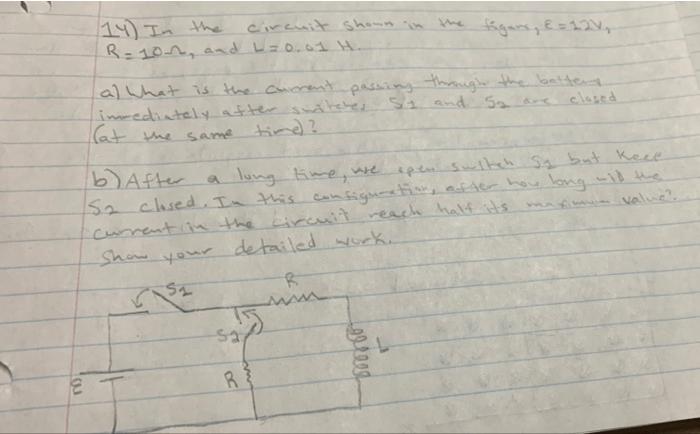 14) In the circuit shown in the figure, ε=12V,
R=10Ω, and L=0.01 H.
a) What is the current passing through the battery
immediately after switches S1 and S2 are closed
(at the same time)?
b) After a long time, we open switch S1 but keep
S2 closed. In this configuration, after how long will the
current in the circuit reach half its maximum value?
Show your detailed work.
S1
R
S2
L
R
ε